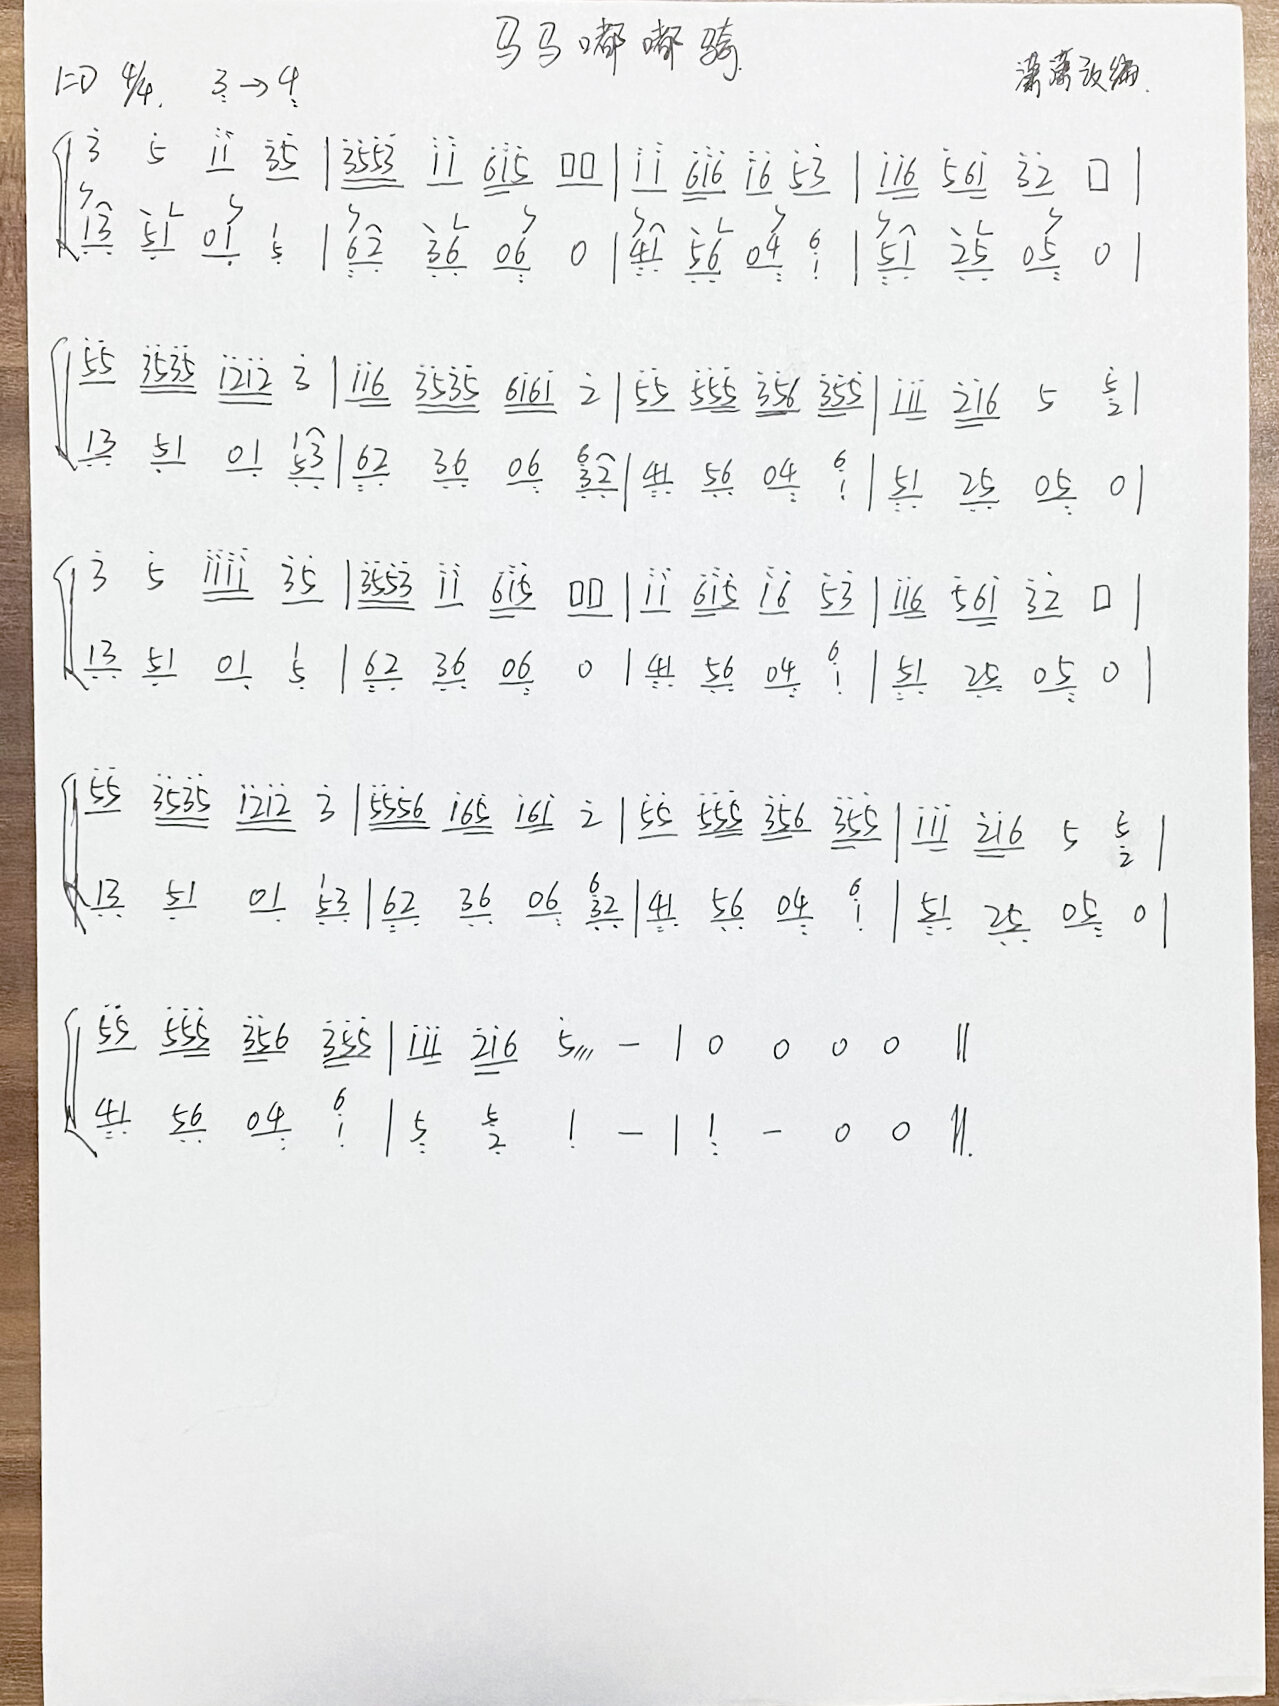 马马嘟嘟骑
1=D 4/4. 3→4 潇萧改编.
3 5 11 35 | 3553 11 615 00 | 11 616 16 53 | 116 561 32 0 |
13 51 01 1 5 | 62 36 06 0 | 41 56 04 6 1 | 51 25 05 0 |
55 3535 1212 3 | 116 3535 6161 2 | 55 555 356 355 | 111 216 5 5 2 |
13 51 01 1 53 | 62 36 06 6 32 | 41 56 04 6 1 | 51 25 05 0 |
3 5 1111 35 | 3553 11 615 00 | 11 615 16 53 | 116 561 32 0 |
13 51 01 1 5 | 62 36 06 0 | 41 56 04 6 1 | 51 25 05 0 |
55 3535 1212 3 | 5556 165 161 2 | 55 555 356 355 | 111 216 5 5 2 |
13 51 01 1 53 | 62 36 06 6 32 | 41 56 04 6 1 | 51 25 05 0 |
55 555 356 355 | 111 216 5/// – | 0 0 0 0 ||
41 56 04 6 1 | 5 5 2 1 – | 1 – 0 0 ||.